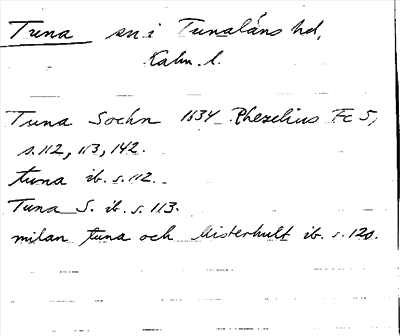 Tuna sn i Tunaläns hd,
Kalm. l.
Tuna Sochn 1634 Rhezelius Fc 5,
s. 112, 113, 142.
tuna ib. s. 112.
Tuna S. ib. s. 113.
milan tuna och Misterhult ib. s. 120.